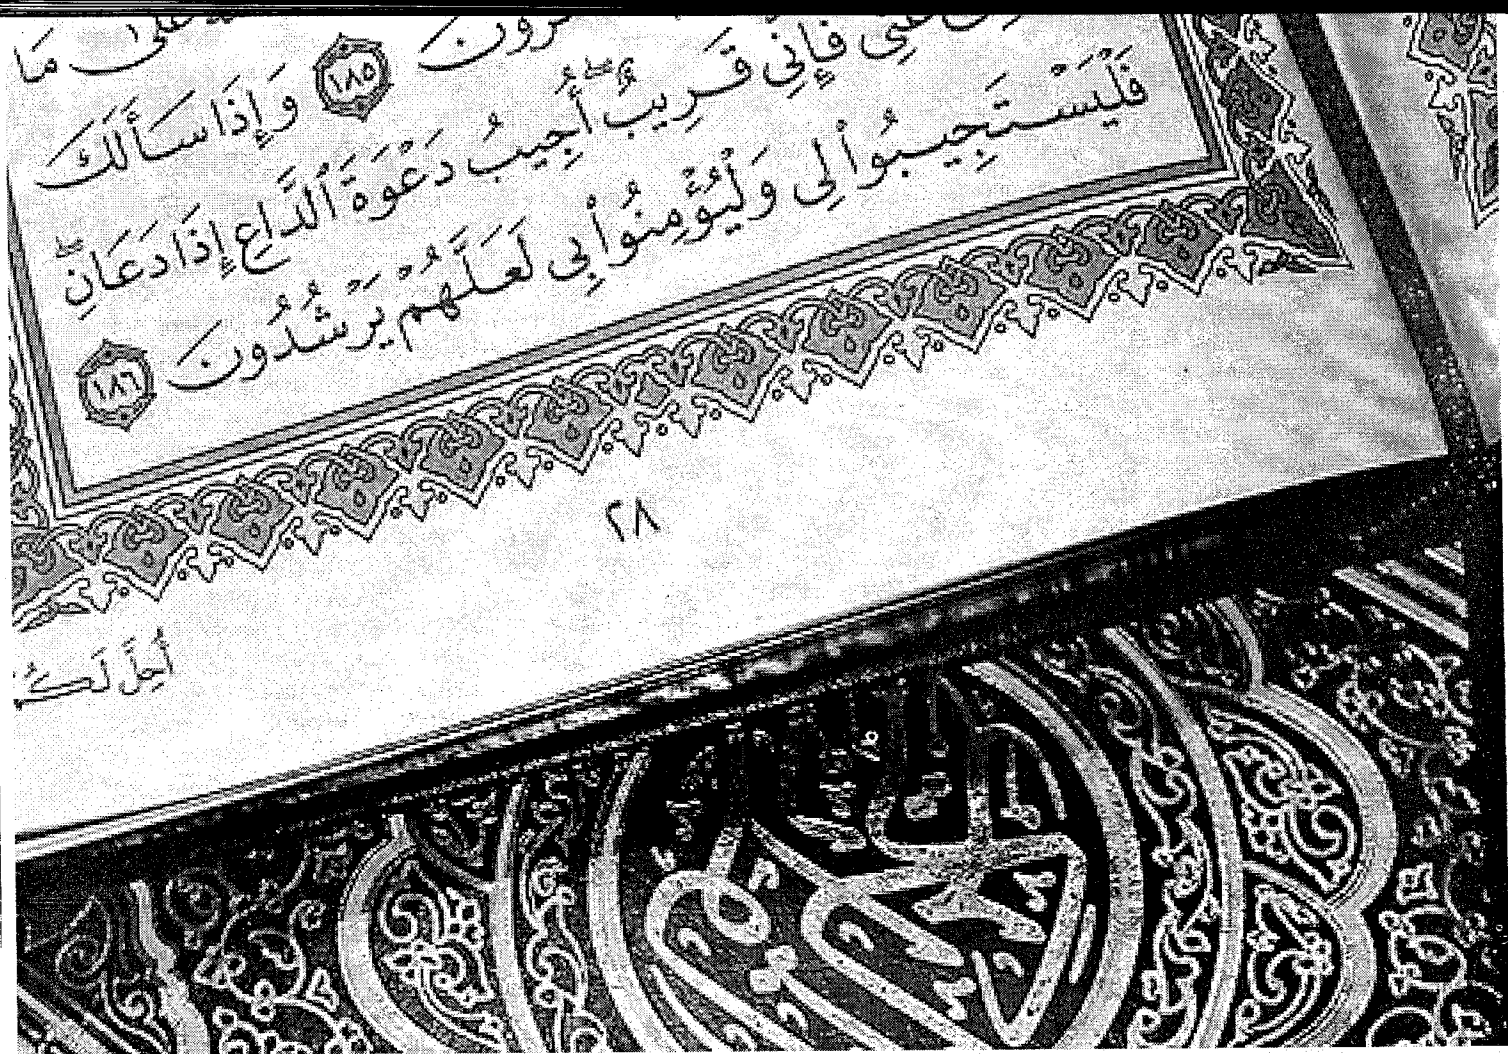 عَلَىٰ مَا
ـرُونَ ١٨٥ وَإِذَا سَأَلَكَ
عَنِّي فَإِنِّي قَرِيبٌ ۖ أُجِيبُ دَعْوَةَ ٱلدَّاعِ إِذَا دَعَانِ ۖ
فَلْيَسْتَجِيبُواْ لِي وَلْيُؤْمِنُواْ بِي لَعَلَّهُمْ يَرْشُدُونَ ١٨٦
٢٨
أُحِلَّ لَكُـ